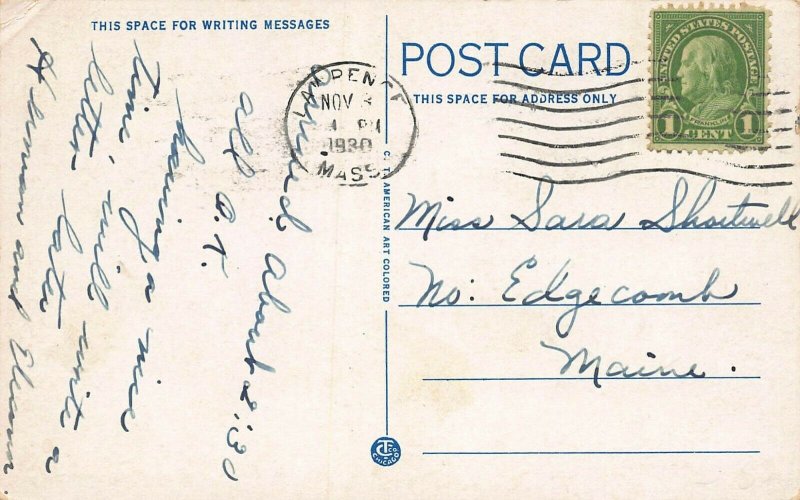 THIS SPACE FOR WRITING MESSAGES
Arrived about 2:30
all O.K.
having a nice
time, will write a
letter later
Herman and Eleanor.
LAWRENCE
NOV 3
PM
1930
MASS.
C. T. AMERICAN ART COLORED
CTCO
CHICAGO
POST CARD
THIS SPACE FOR ADDRESS ONLY
UNITED STATES POSTAGE
FRANKLIN
1 CENT 1
Miss Sara Shortwell
No: Edgecomb
Maine.